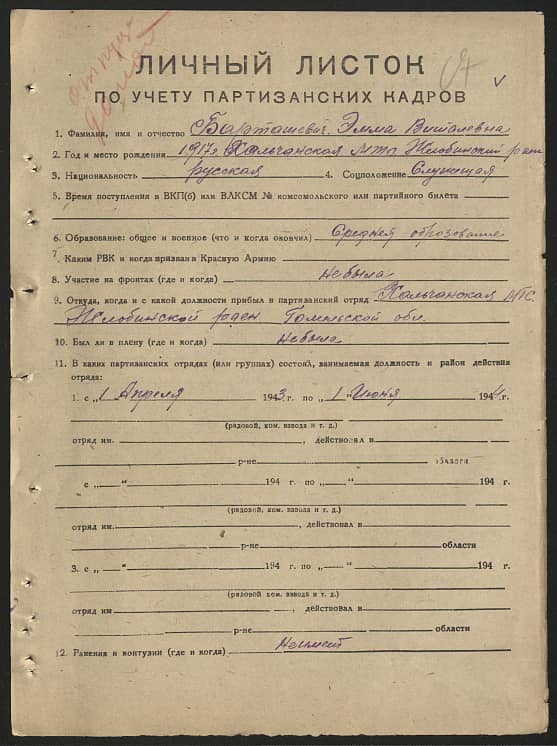 отпус
домой
ЛИЧНЫЙ ЛИСТОК
ПО УЧЕТУ ПАРТИЗАНСКИХ КАДРОВ
1. Фамилия, имя и отчество Барташевич Эмма Виталевна
2. Год и место рождения 1917г Кальчанская мтс Жлобинский раен
3. Национальность русская 4. Соцположение Служищая
5. Время поступления в ВКП(б) или ВЛКСМ № комсомольского или партийного билета
6. Образование: общее и военное (что и когда окончил) Среднея образование
7. Каким РВК и когда призван в Красную Армию
8. Участие на фронтах (где и когда) небыла
9. Откуда, когда и с какой должности прибыл в партизанский отряд Кальчанская МТС.
Жлобинской раен Гомельской обл.
10. Был ли в плену (где и когда) небыла
11. В каких партизанских отрядах (или группах) состоял, занимаемая должность и район действия
отряда:
1. с „1 Апреля 1943 г. по „1 Июня 1944 г.
(рядовой, ком. взвода и т. д.)
отряд им. , действовал в
р-не области
с „ “ 194 г. по „ “ 194 г.
(рядовой, ком. взвода и т. д.)
отряд им. , действовал в
р-не области
3. с „ “ 194 г. по „ “ 194 г.
(рядовой, ком. взвода и т. д.)
отряд им , действовал в
р-не области
12. Ранения и контузии (где и когда) Неимеит